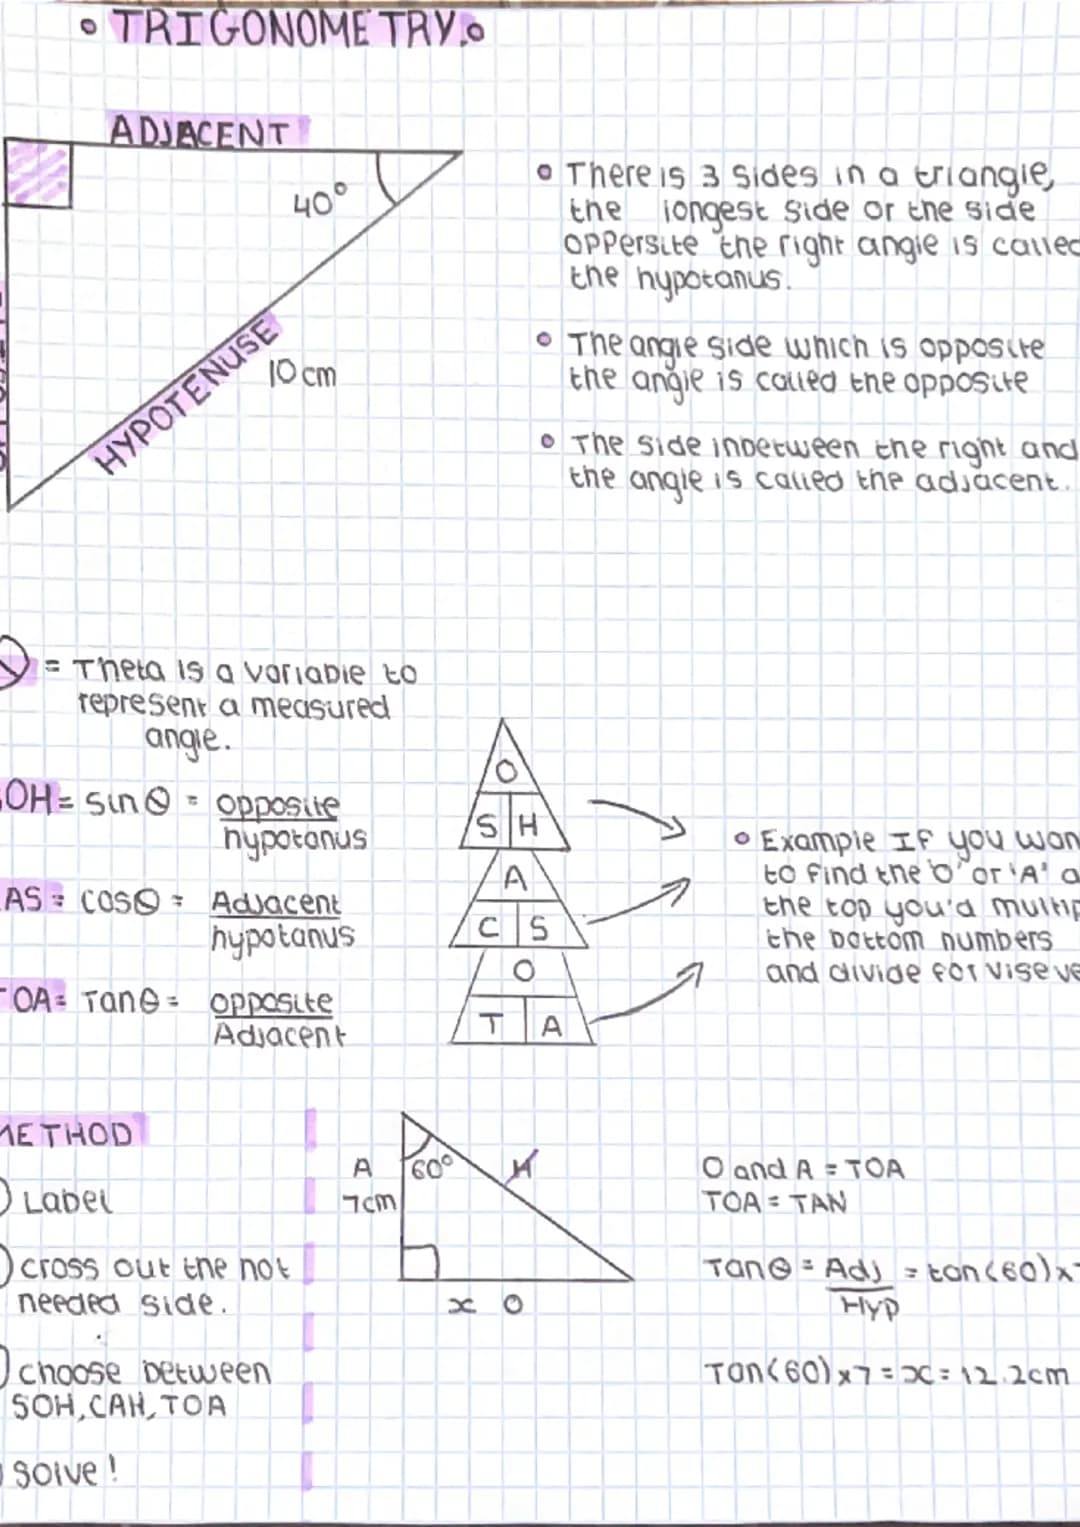 TRIGONOMETRY.
ADJACENT
40°
HYPOTENUSE
10cm
• There is 3 sides in a triangle,
the longest side or the side
oppersite the right angle is called
the hypotanus.
• The angle side which is opposite
the angle is called the opposite
• The side inbetween the right and
the angle is called the adjacent.
= Theta is a variable to
represent a measured
angle.
OH = sin θ = opposite
hypotanus
AS = cosθ = Adjacent
hypotanus
TOA = Tanθ = opposite
Adjacent
O
S H
A
C S
O
T A
• Example If you wan
to find the 'O' or 'A' a
the top you'd multip
the bottom numbers
and divide for vise ve
METHOD
Label
cross out the not
needed side.
choose between
SOH, CAH, TOA
solve!
A
7cm
60°
H
x O
O and A = TOA
TOA = TAN
Tanθ = Adj = tan(60)x7
Hyp
Tan(60)x7 = x = 12.2cm